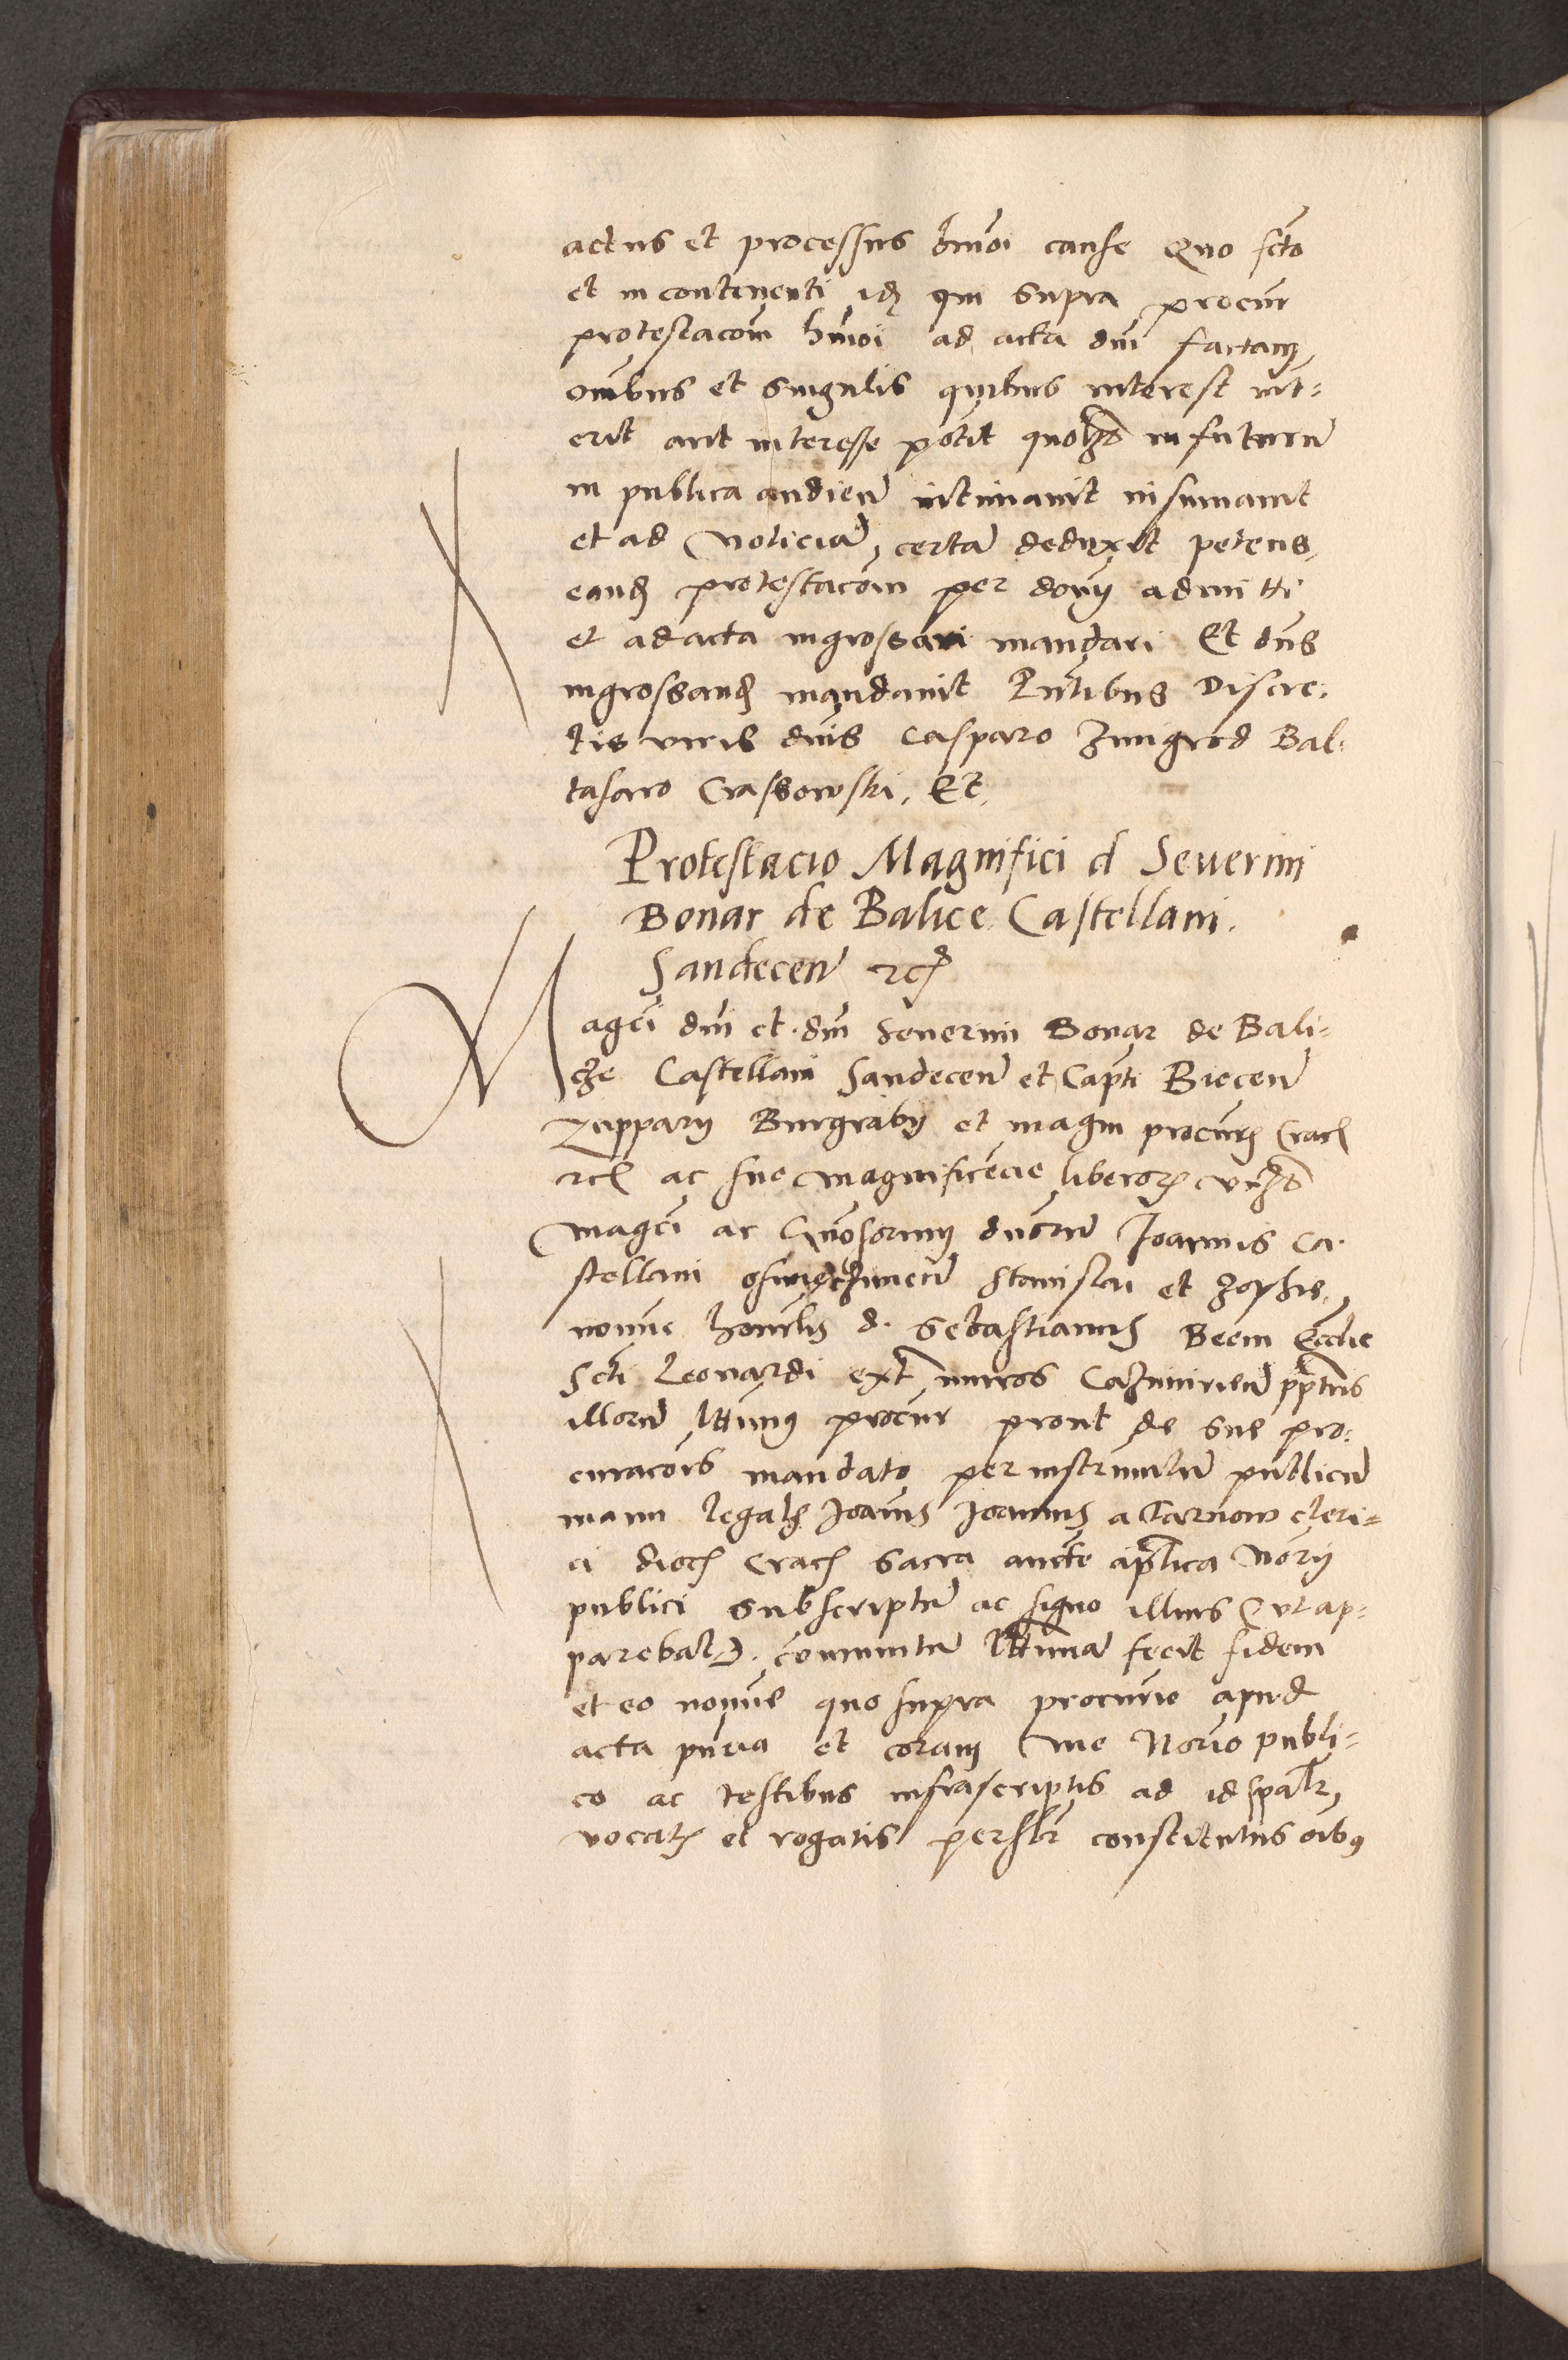 actus et processus hmoi cause Quo fcto
et in contenenti idẽ qui supra procur
protestacom hmoi ad acta dni factam
omibus et singulis quibus interest int=
erit aut interesse potit quolzt in futuru
in publica audien intimavit insinuavit
et ad noticiã certã deduxit petens
eandẽ protestacom per dom̃ admitti
et ad acta ingrossari mandari Et dns
ingrossandẽ mandavit Pntibus Discre-
tis viris dnis Casparo Jungrod Bal-
tasaro Crassowski. Et.
Protestacio Magnifici d Severini
Bonar de Balice Castellani
Sandecen̄ etc
Magci dni et dni Severini Bonar de Bali=
cze Castellani Sandecen̄ et Capti Biecen̄
zupparij Burgrabij et magni procur̃ Crac̃
etc ac sue magnificẽcie liberorum vidzt
magci ac Gñosorum dnorum Joannis Ca-
stellani Stanislai et Zophie
nomine honrlis d. Sebastianus Beem Ecclie
Scti Leonardi extr muros Cazimirien̄ pptus
illoru lttimus procur prout de sue pro-
curacois mandato per instrumentũ publicũ
manu legalis Joannis Joannis a Tarnow cleri=
ci dioc̃ Crac̃ sacra aucte aplica Norij
publici subscriptũ ac signo illius (ut ap=
parebat). comunitũ lttimã fecit fidem
et eo nomine quo supra procurio apud
acta pñtia et coram me Norio publi=
co ac testibus infrascriptis ad id spalr
vocatis et rogatis persolr constitutus oibus